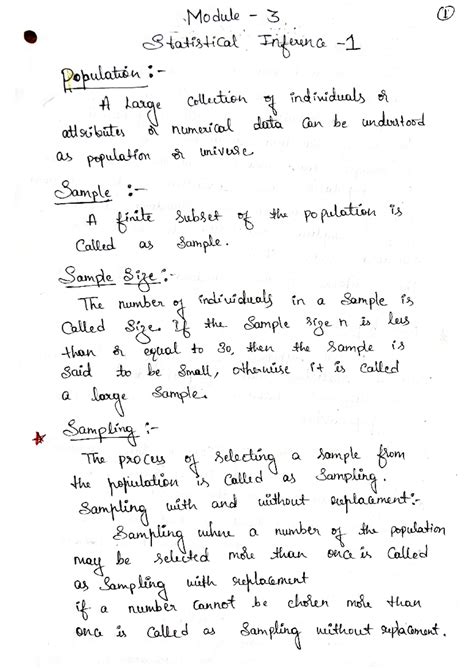 Module - 3
①
Statistical Inference - 1
Population :-
A Large collection of individuals or
attributes or numerical data can be understood
as population or universe
Sample :-
A finite subset of the population is
Called as Sample.
Sample Size :-
The number of individuals in a Sample is
Called Size. If the Sample size n is less
than or equal to 30, then the Sample is
Said to be Small, otherwise it is called
a large Sample.
Sampling :-
The process of selecting a sample from
the population is called as Sampling.
Sampling with and without replacement:-
Sampling where a number of the population
may be selected more than once is called
as Sampling with replacement
if a number cannot be chosen more than
once is called as Sampling without replacement.